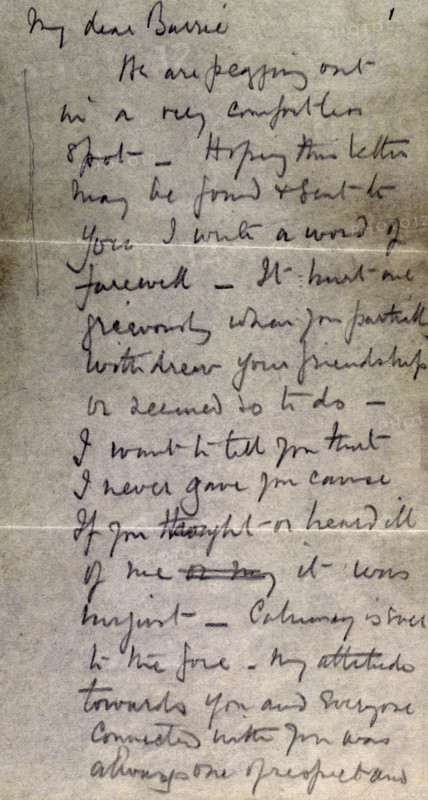 1
My dear Barrie
We are pegging out
in a very comfortless
spot — Hoping this letter
may be found & sent to
you I write a word of
farewell — It hurt me
grievously when you partially
withdrew your friendship
or seemed so to do —
I want to tell you that
I never gave you cause
If you thought or heard ill
of me it was
unjust — Calumny is ever
to the fore. My attitude
towards you and everyone
connected with you was
always one of respect and